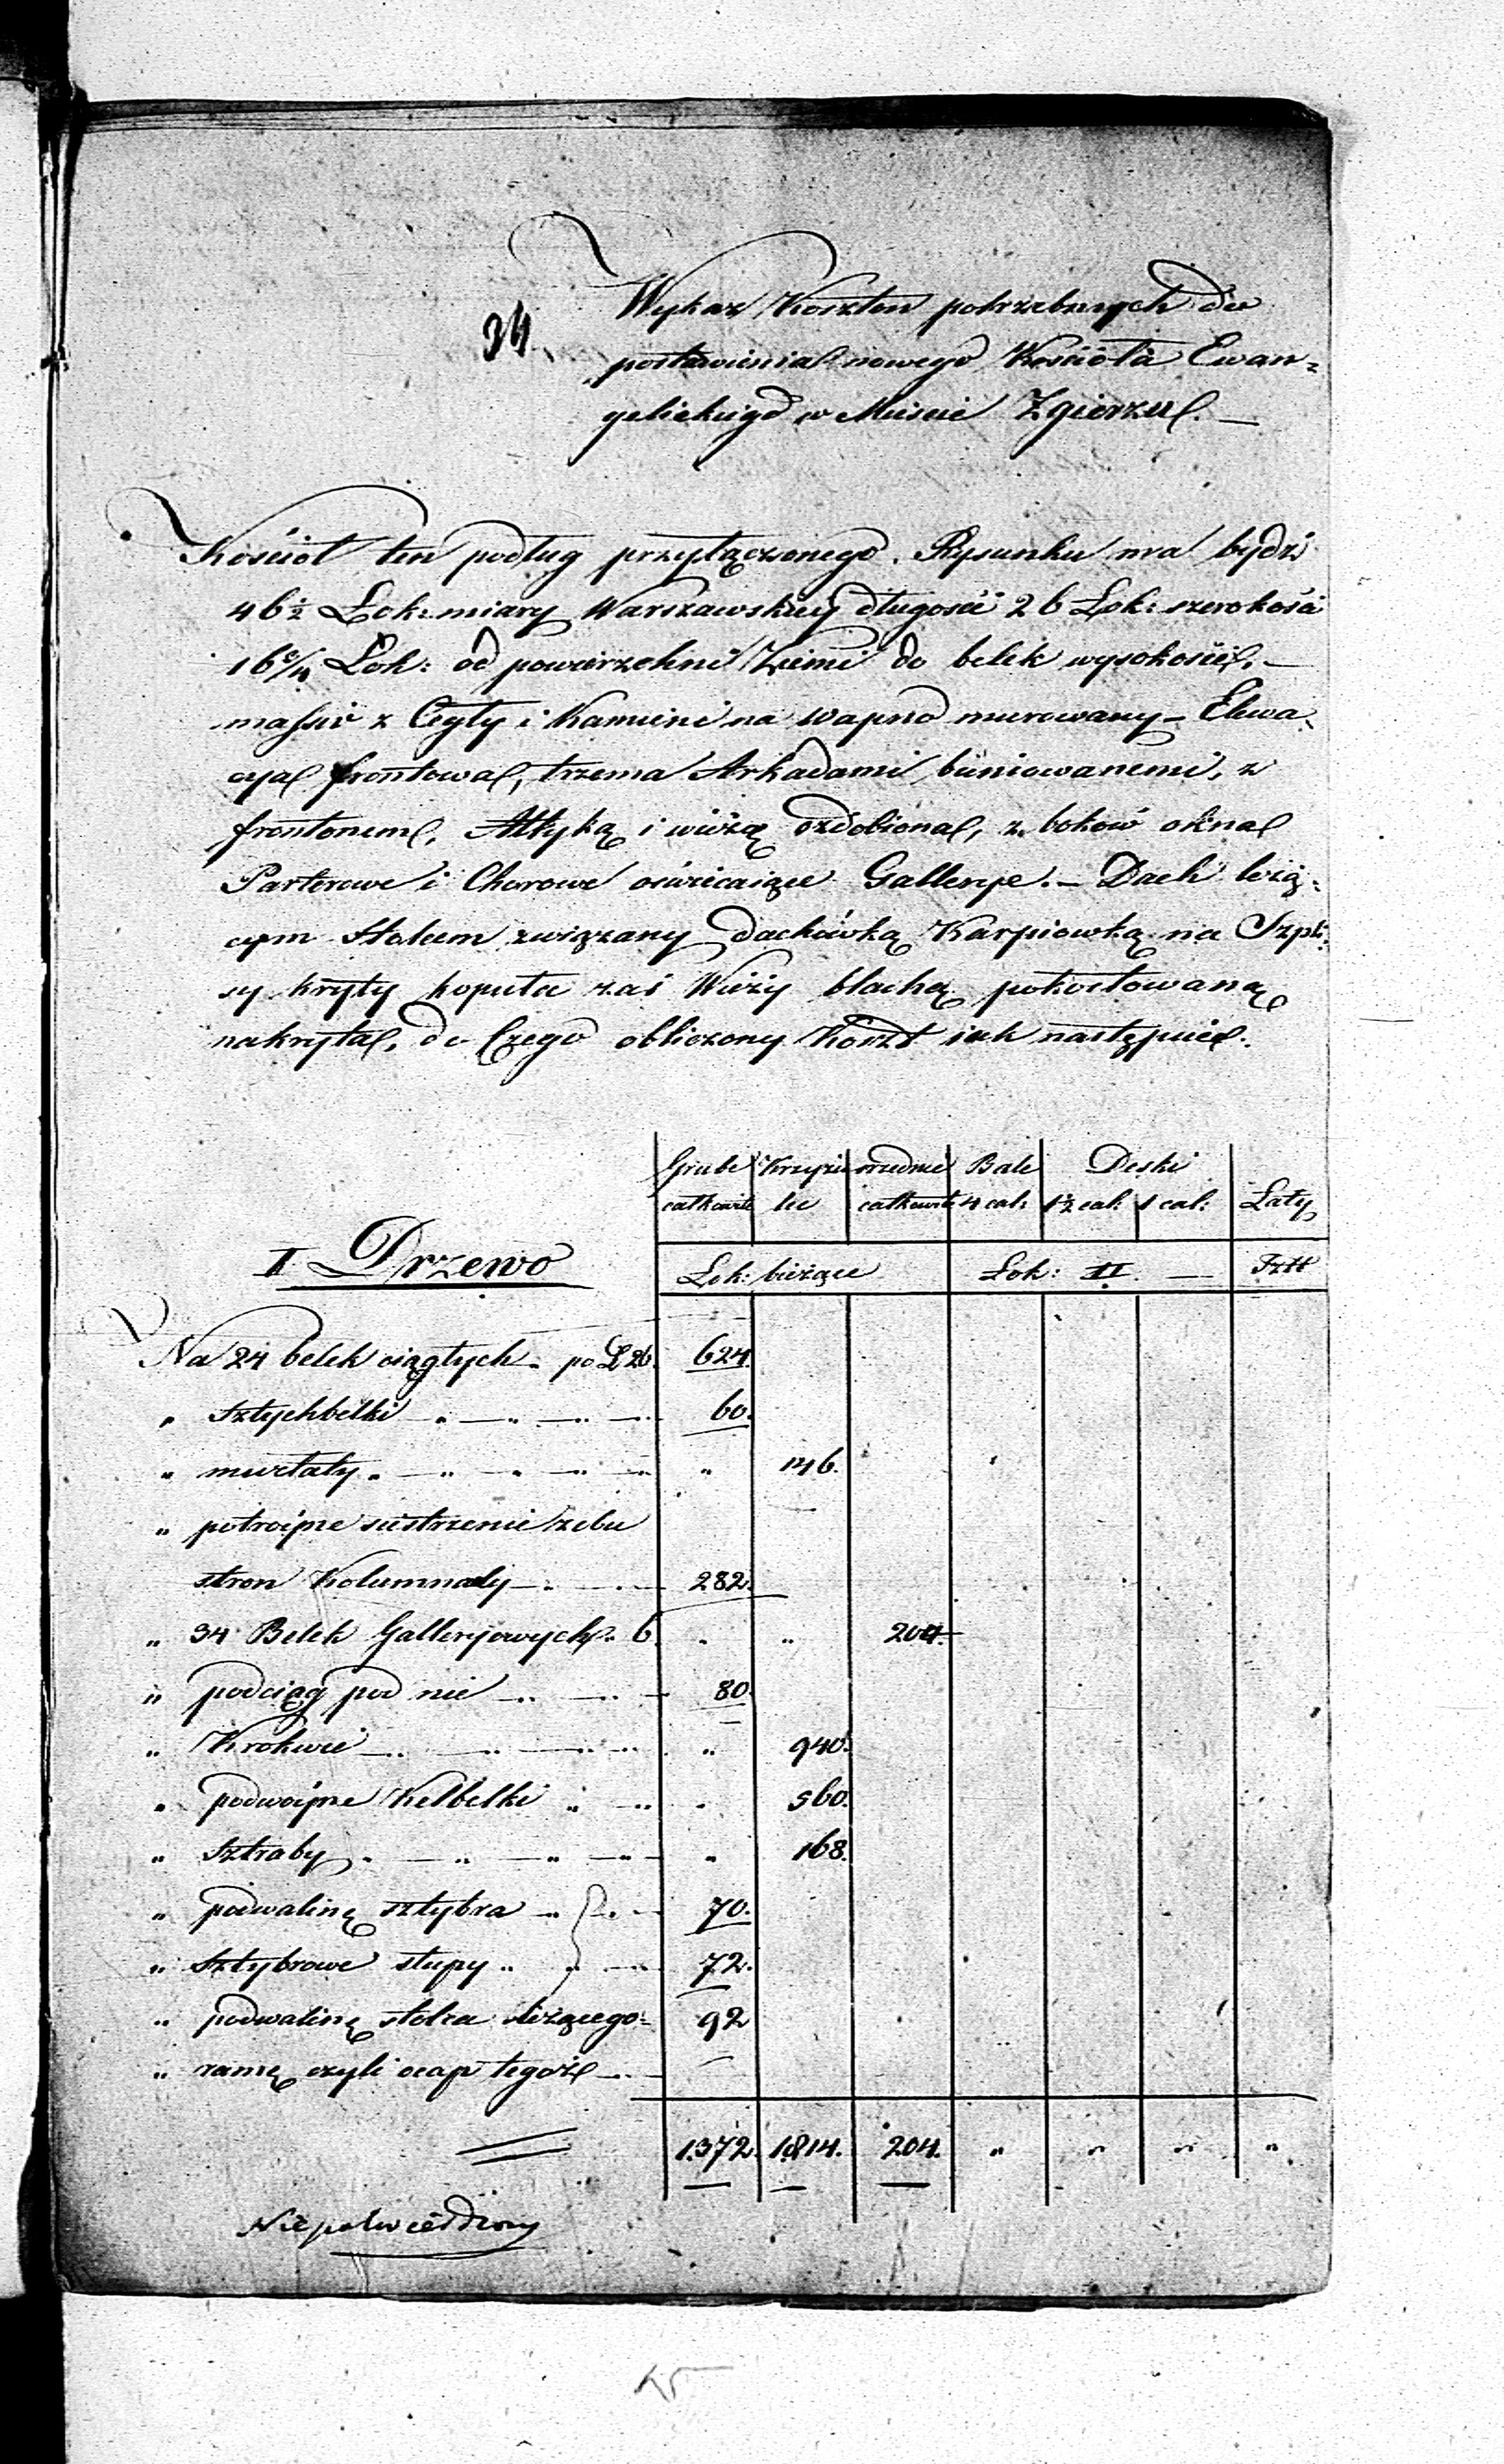 34.
Wykaz Kosztów potrzebnych do
postawienia nowego Kościoła Ewan=
gelickiego w Mieście Zgierzu. —
Kościoł ten podług przyłączonego Rysunku ma bydź
46½ Łok: miary Warszawskiey długości 26 Łok: szerokości
Łok: od powierzchni Ziemi do belek wysokości, —
massiv z Cegły i Kamieni na wapno murowany — Elewa=
cya frontowa, trzema Arkadami boniowanemi, z
frontonem, Attyką i wieżą ozdobiona, z boków okna
Parterowe i Chorowe oświecaiące Gallerye. — Dach leżą=
cym Stolcem związany dachówką Karpiowką na Szpli=
sy kryty kopuła zaś Wieży blachą pokostowaną
nakryta, do Czego obliczony Koszt iak następuie.
Grube Krzyżu średnie Bale Deski
całkowite lec całkowite 4 cal: 1½ cal: 1 cal: Łaty
I. Drzewo
Łok: bieżące Łok: □ — Sztt
Na 24 belek ciągłych po Ł 26. 624.
„ sztychbelki 60.
„ murłaty „ 146.
„ potroyne siestrzenie z obu
stron Kolumnady 282.
„ 34 Belek Galleryowych 6. „ „ 204.
„ podciąg pod nie 80.
„ Krokwie „ 940.
„ podwoyne Kelbelki „ 560.
„ sztraby „ 168.
„ podwalinę sztybra 70.
„ sztybrowe słupy 72.
„ podwalinę stolca leżącego 92
„ ramę czyli ocap tegoż —
1.372. 1.814. 204. „ „ „ „
Niepotwierdzony